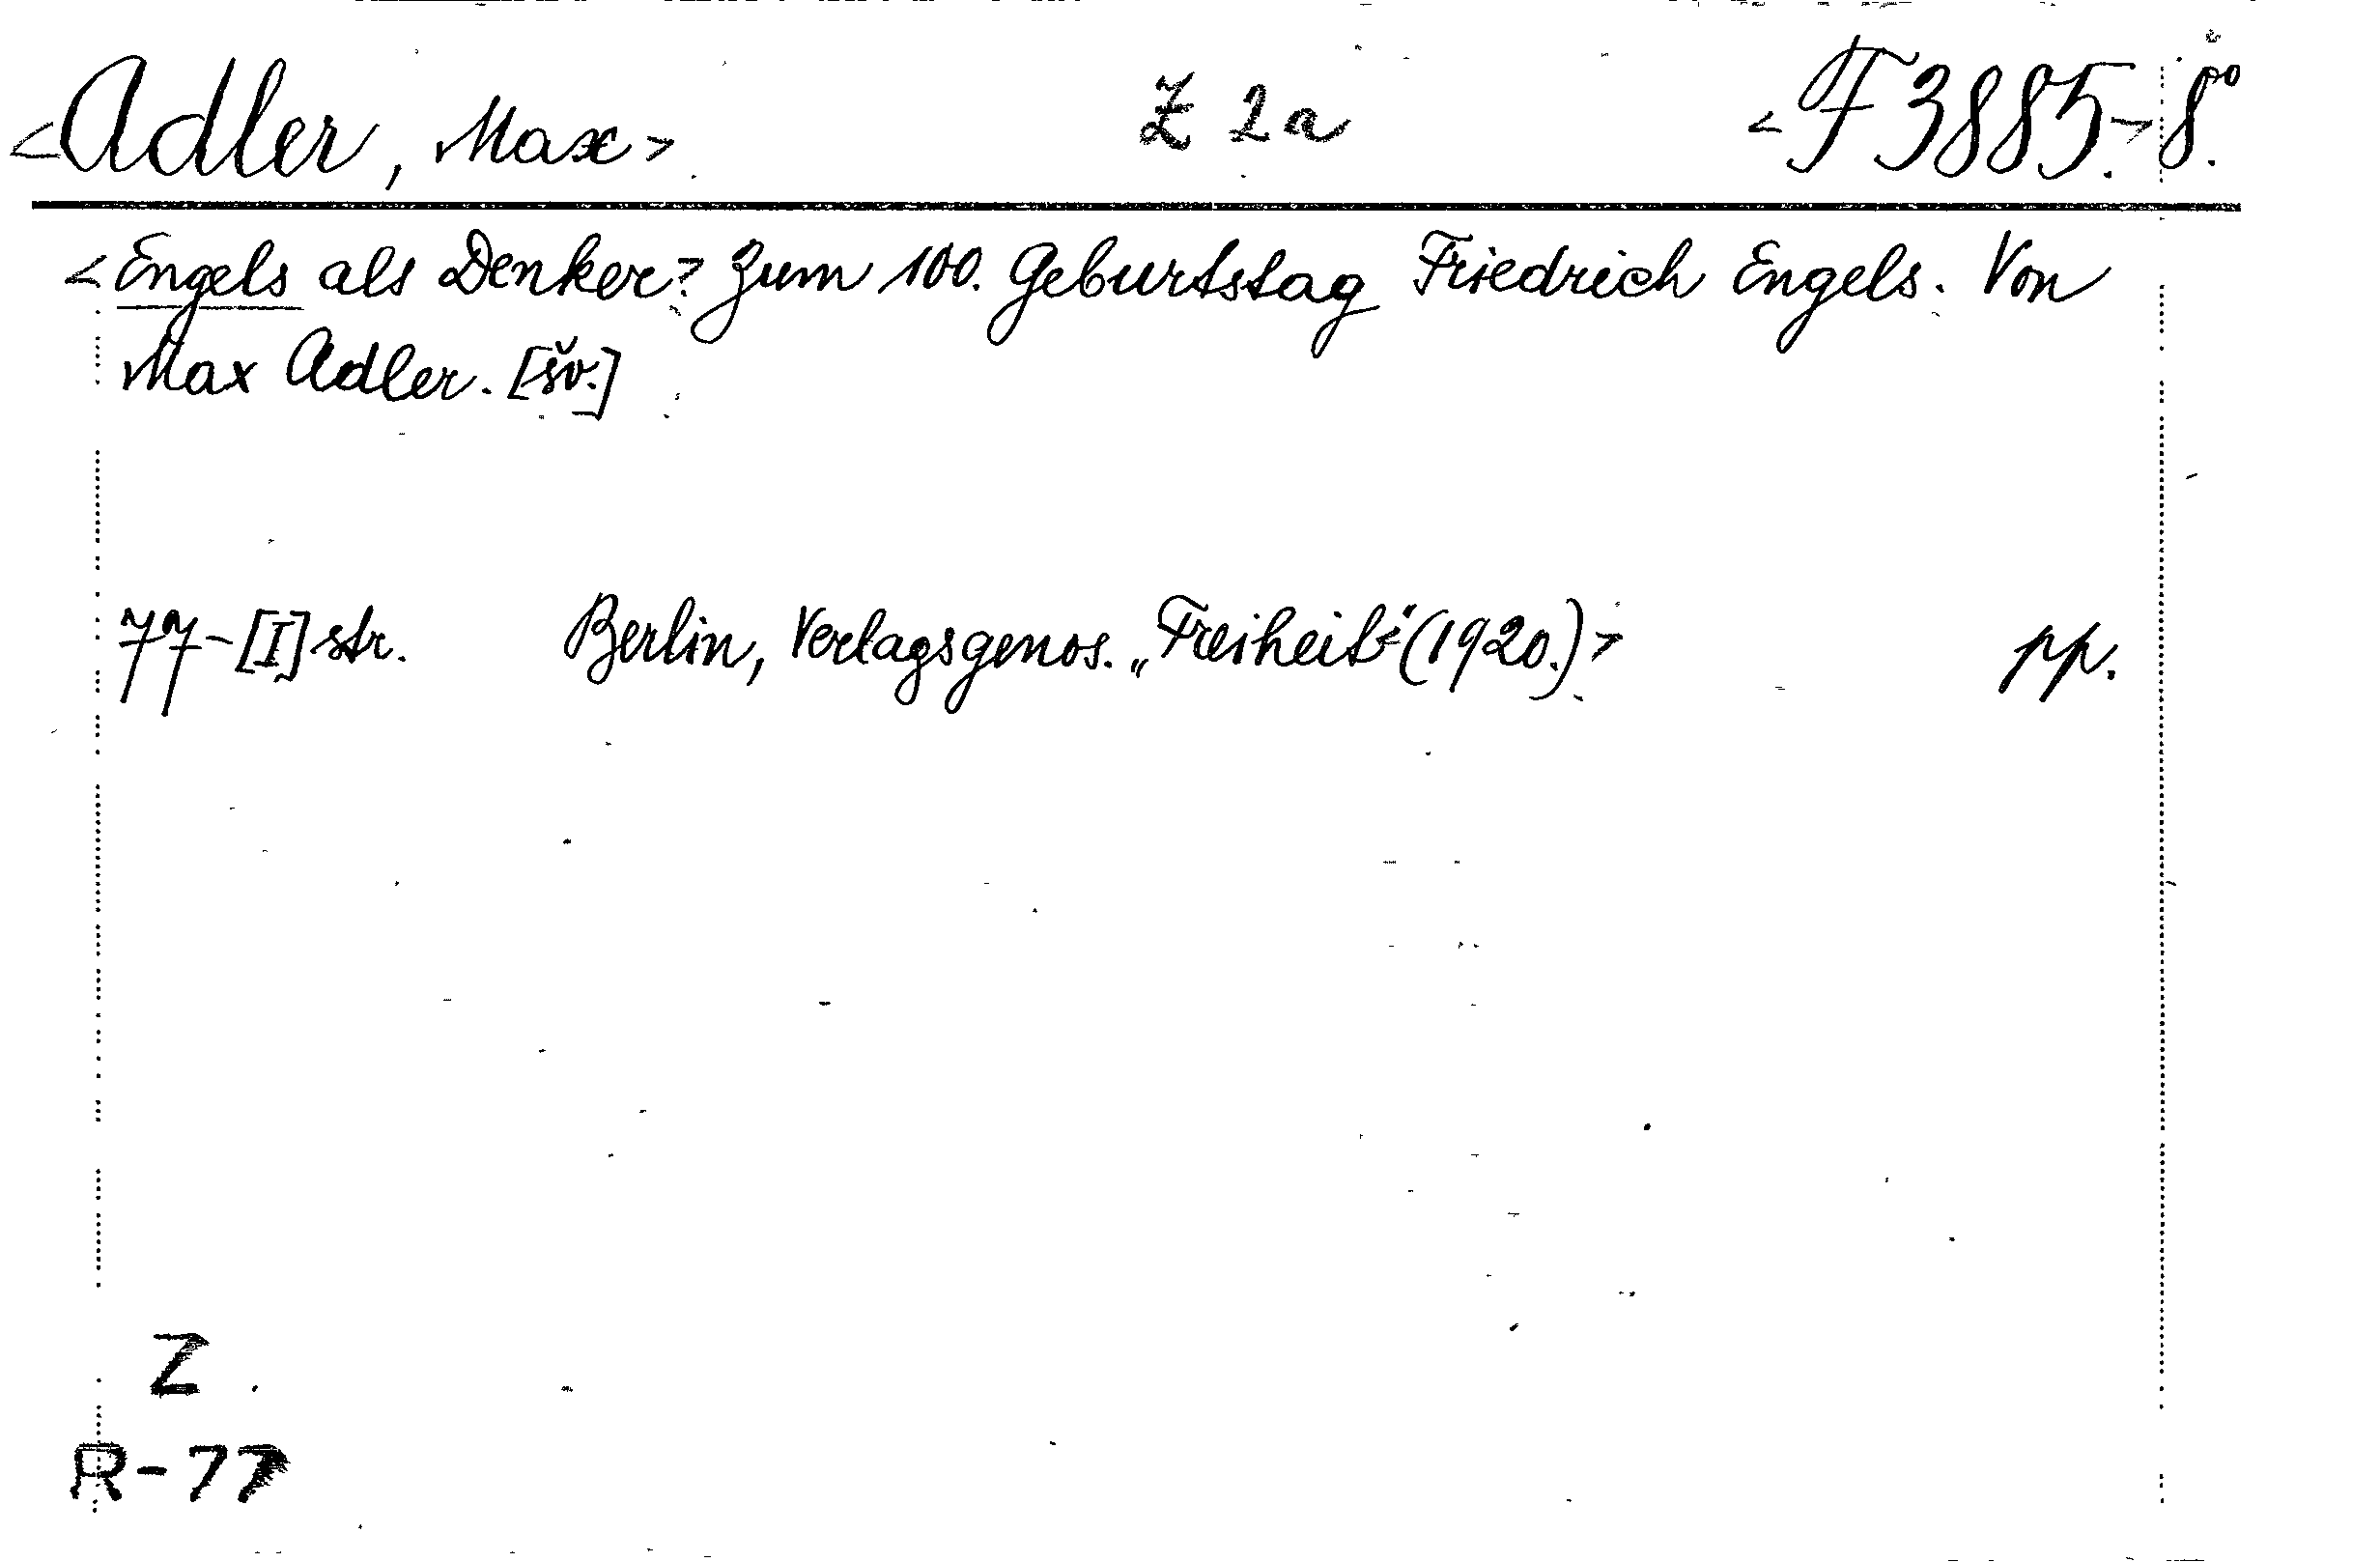 <Adler, Max> Z 2a <F 3885.> 8°.
<Engels als Denker? Zum 100. Geburtstag Friedrich Engels. Von
Max Adler. [šv.]
77-[I] str. Berlin, Verlagsgenos. „Freiheit“ (1920.)> pp.
Z
R-77